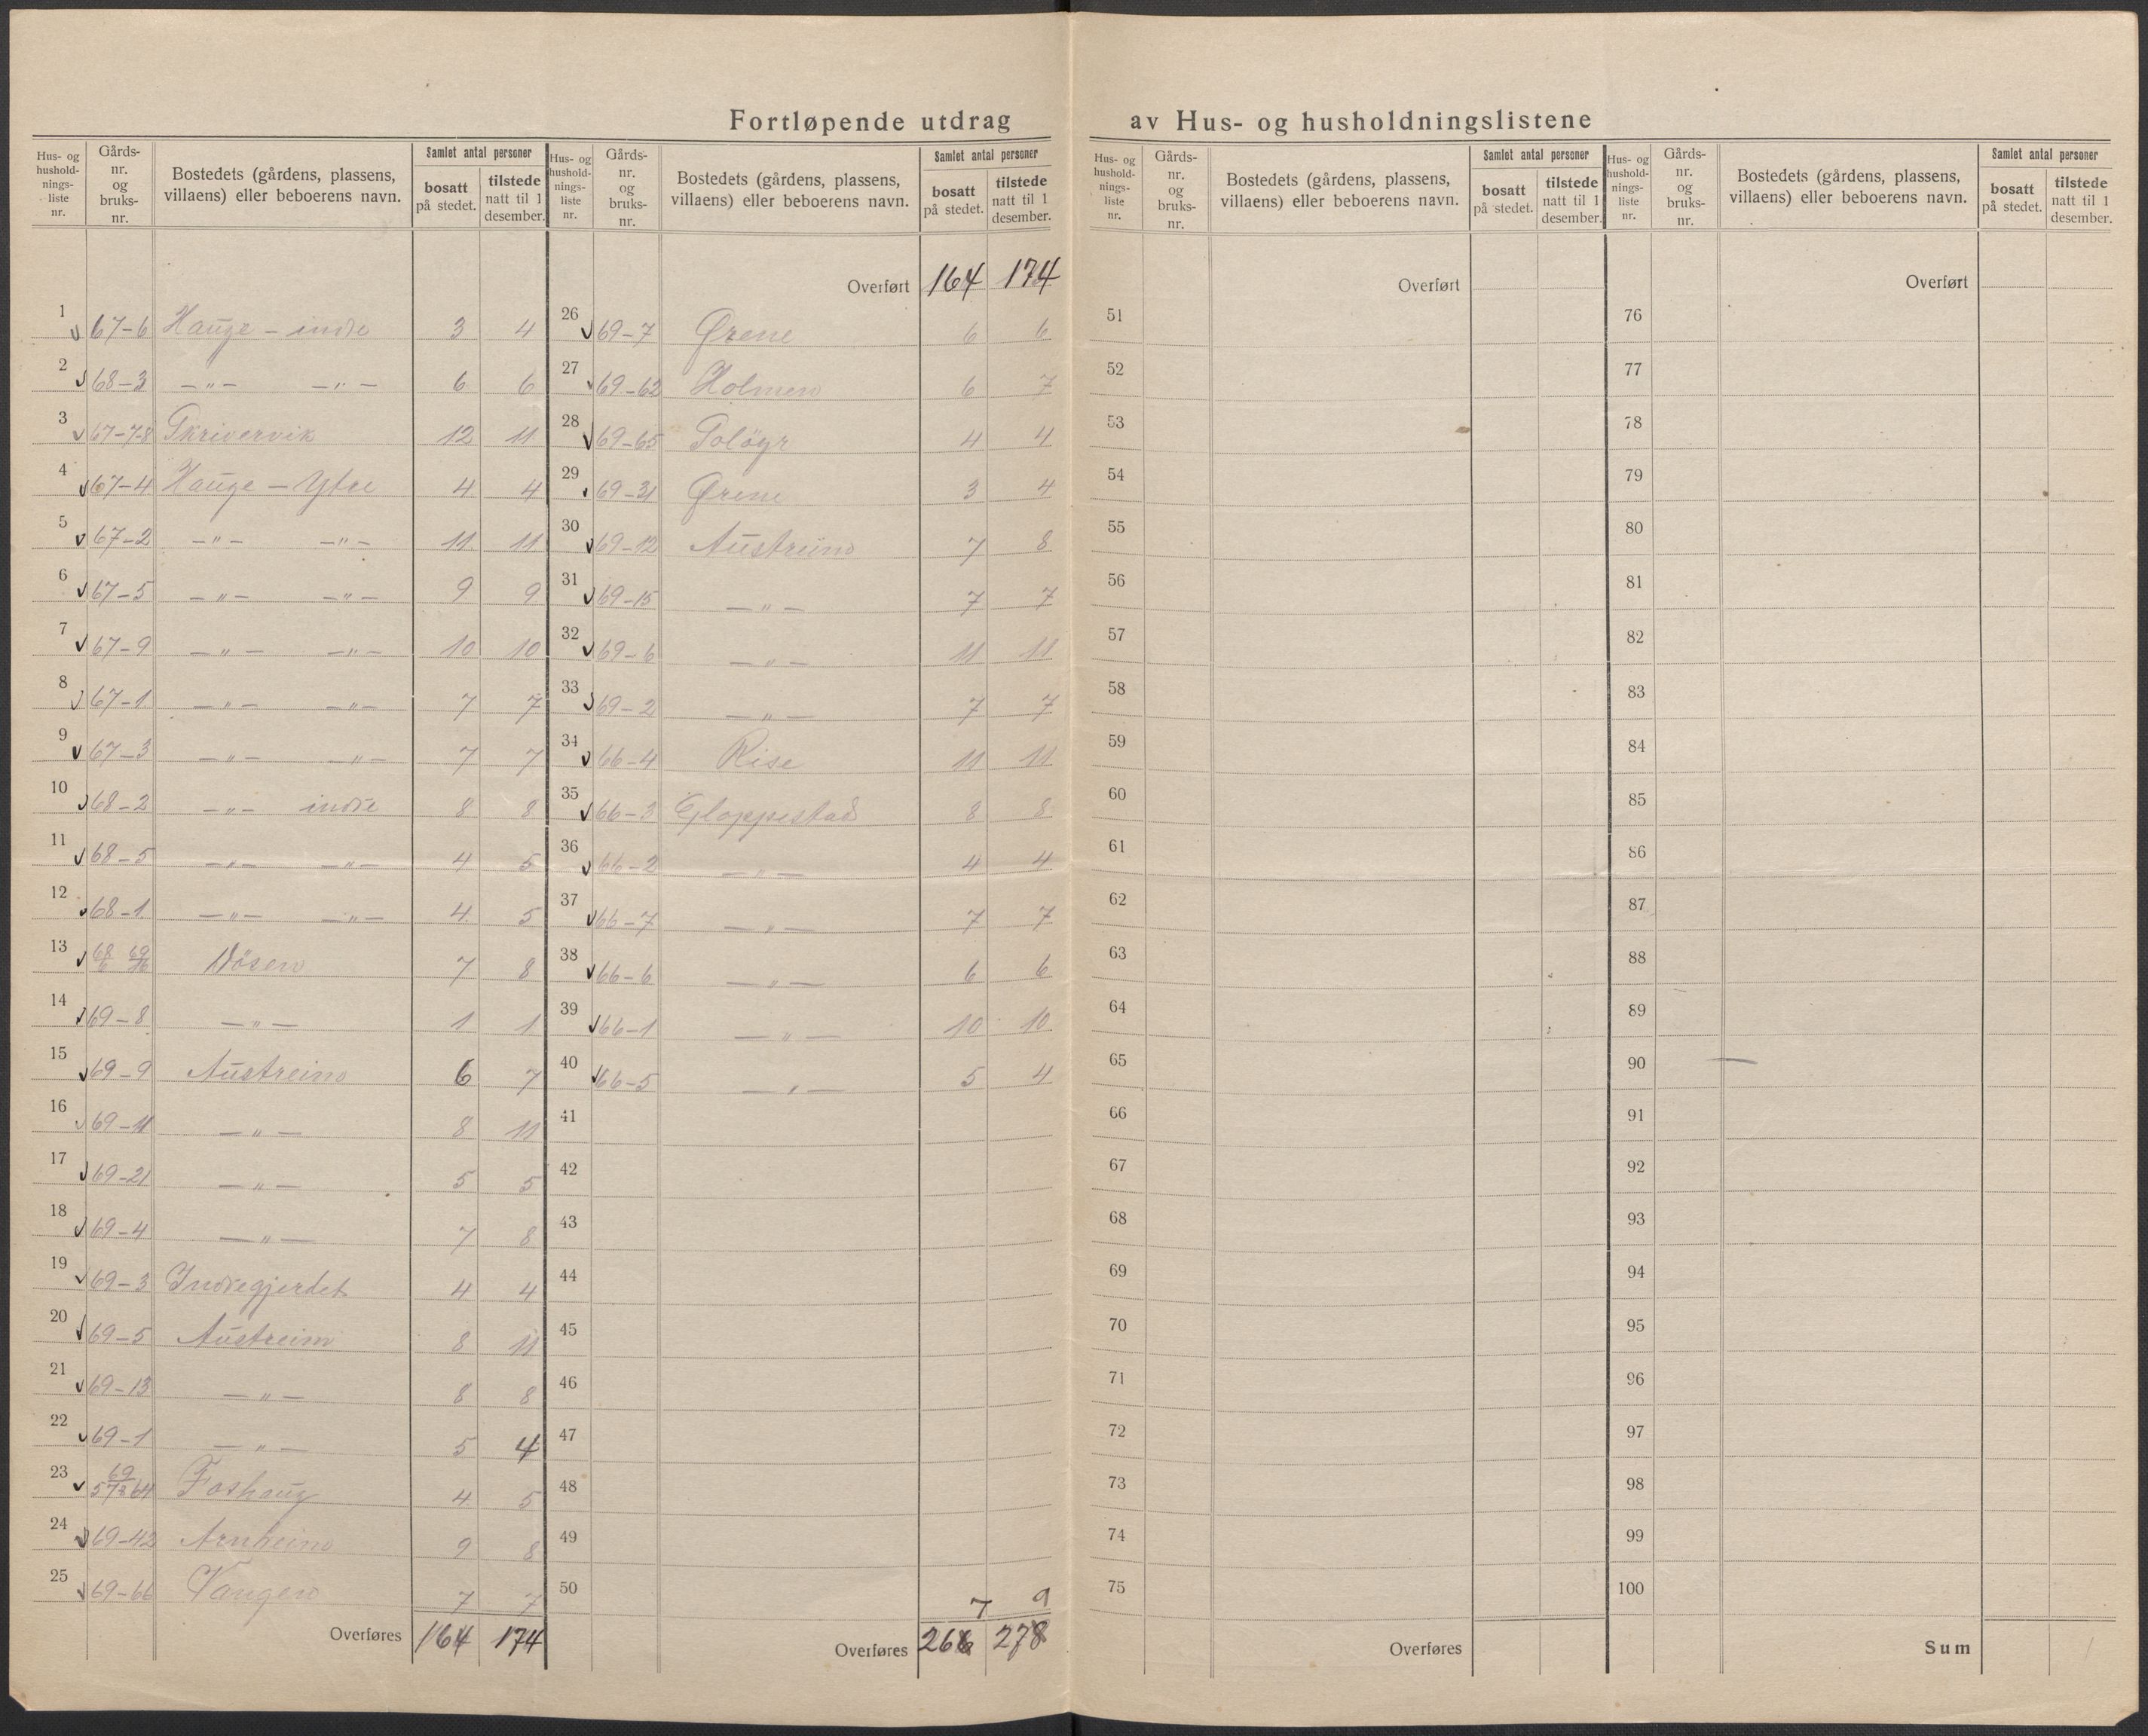 Fortløpende utdrag av Hus- og husholdningslistene
Hus- og husholdnings-liste nr. Gårds-nr. og bruks-nr. Bostedets (gårdens, plassens, villaens) eller beboerens navn. Samlet antal personer bosatt på stedet. tilstede natt til 1 desember.
1 67-6 Hauge - indre 3 4
2 68-3 -"- -"- 6 6
3 67-7-8 Skrivervik 12 11
4 67-4 Hauge - Ytre 4 4
5 67-2 -"- -"- 11 11
6 67-5 -"- -"- 9 9
7 67-9 -"- -"- 10 10
8 67-1 -"- -"- 7 7
9 67-3 -"- -"- 7 7
10 68-2 -"- indre 8 8
11 68-5 -"- -"- 4 5
12 68-1 -"- -"- 4 5
13 68/6 69/16 Vösen 7 8
14 69-8 -"- 1 1
15 69-9 Austreim 6 7
16 69-11 -"- 8 11
17 69-21 -"- 5 5
18 69-4 -"- 7 8
19 69-3 Indregjerdet 4 4
20 69-5 Austreim 8 11
21 69-13 -"- 8 8
22 69-1 -"- 5 4
23 69 Foshaug 4 5
24 69-42 Arnheim 9 8
25 69-66 Vangen 7 7
Overføres 164 174
Hus- og husholdnings-liste nr. Gårds-nr. og bruks-nr. Bostedets (gårdens, plassens, villaens) eller beboerens navn. Samlet antal personer bosatt på stedet. tilstede natt til 1 desember.
Overført 164 174
26 69-7 Ørene 6 6
27 69-62 Holmen 6 7
28 69-65 Soløyr 4 4
29 69-31 Ørene 3 4
30 69-12 Austreim 7 8
31 69-15 -"- 7 7
32 69-6 -"- 11 11
33 69-2 -"- 7 7
34 66-4 Rise 11 11
35 66-3 Gloppestad 8 8
36 66-2 -"- 4 4
37 66-7 -"- 7 7
38 66-6 -"- 6 6
39 66-1 -"- 10 10
40 66-5 -"- 5 4
41
42
43
44
45
46
47
48
49
50 7 9
Overføres 266 278
Hus- og husholdnings-liste nr. Gårds-nr. og bruks-nr. Bostedets (gårdens, plassens, villaens) eller beboerens navn. Samlet antal personer bosatt på stedet. tilstede natt til 1 desember.
Overført
51
52
53
54
55
56
57
58
59
60
61
62
63
64
65
66
67
68
69
70
71
72
73
74
75
Overføres
Hus- og husholdnings-liste nr. Gårds-nr. og bruks-nr. Bostedets (gårdens, plassens, villaens) eller beboerens navn. Samlet antal personer bosatt på stedet. tilstede natt til 1 desember.
Overført
76
77
78
79
80
81
82
83
84
85
86
87
88
89
90
91
92
93
94
95
96
97
98
99
100
Sum